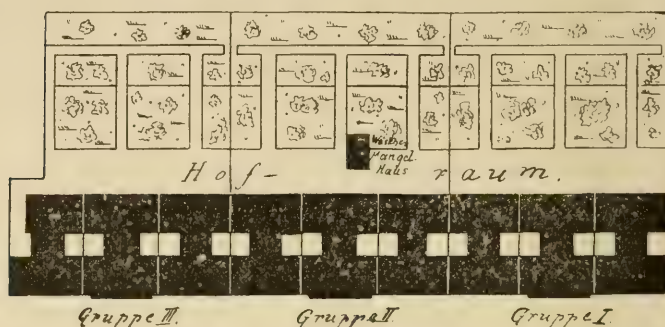 Mangel-
Haus
Hof- raum.
Gruppe III. Gruppe II. Gruppe I.